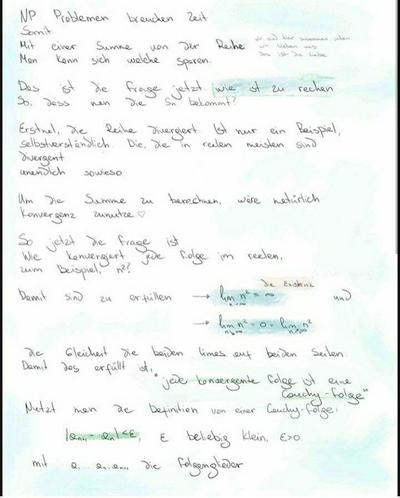 NP Problemen brauchen Zeit
Somit
Mit einer Summe von der Reihe
Man kann sich welche sparen.
Das ist die Frage jetzt, wie ist zu rechen
So, dass man die Sn bekommt?
Erstmal, die Reihe divergent Ist nur ein Beispiel,
selbstverständlich. Die, die in reelen meisten sind
divergent
unendlich sowieso
Um die Summe zu berechnen, wäre natürlich
Konvergenz zunutze ♡
So jetzt die Frage ist
Wie konvergiert jede Folge im reelen,
zum Beispiel, n²?
die Existenz
Damit sind zu erfüllen → lim n² = ∞ und
→ lim n² = 0 = lim n²
die Gleicheit die beiden limes auf beiden Seiten.
Damit das erfüllt ist, "jede konvergente Folge ist eine
Cauchy-Folge"
Nutzt man die Defintion von einer Cauchy-Folge:
|am - an| < ε, ε beliebig klein, ε>0
mit die Folgenglieder